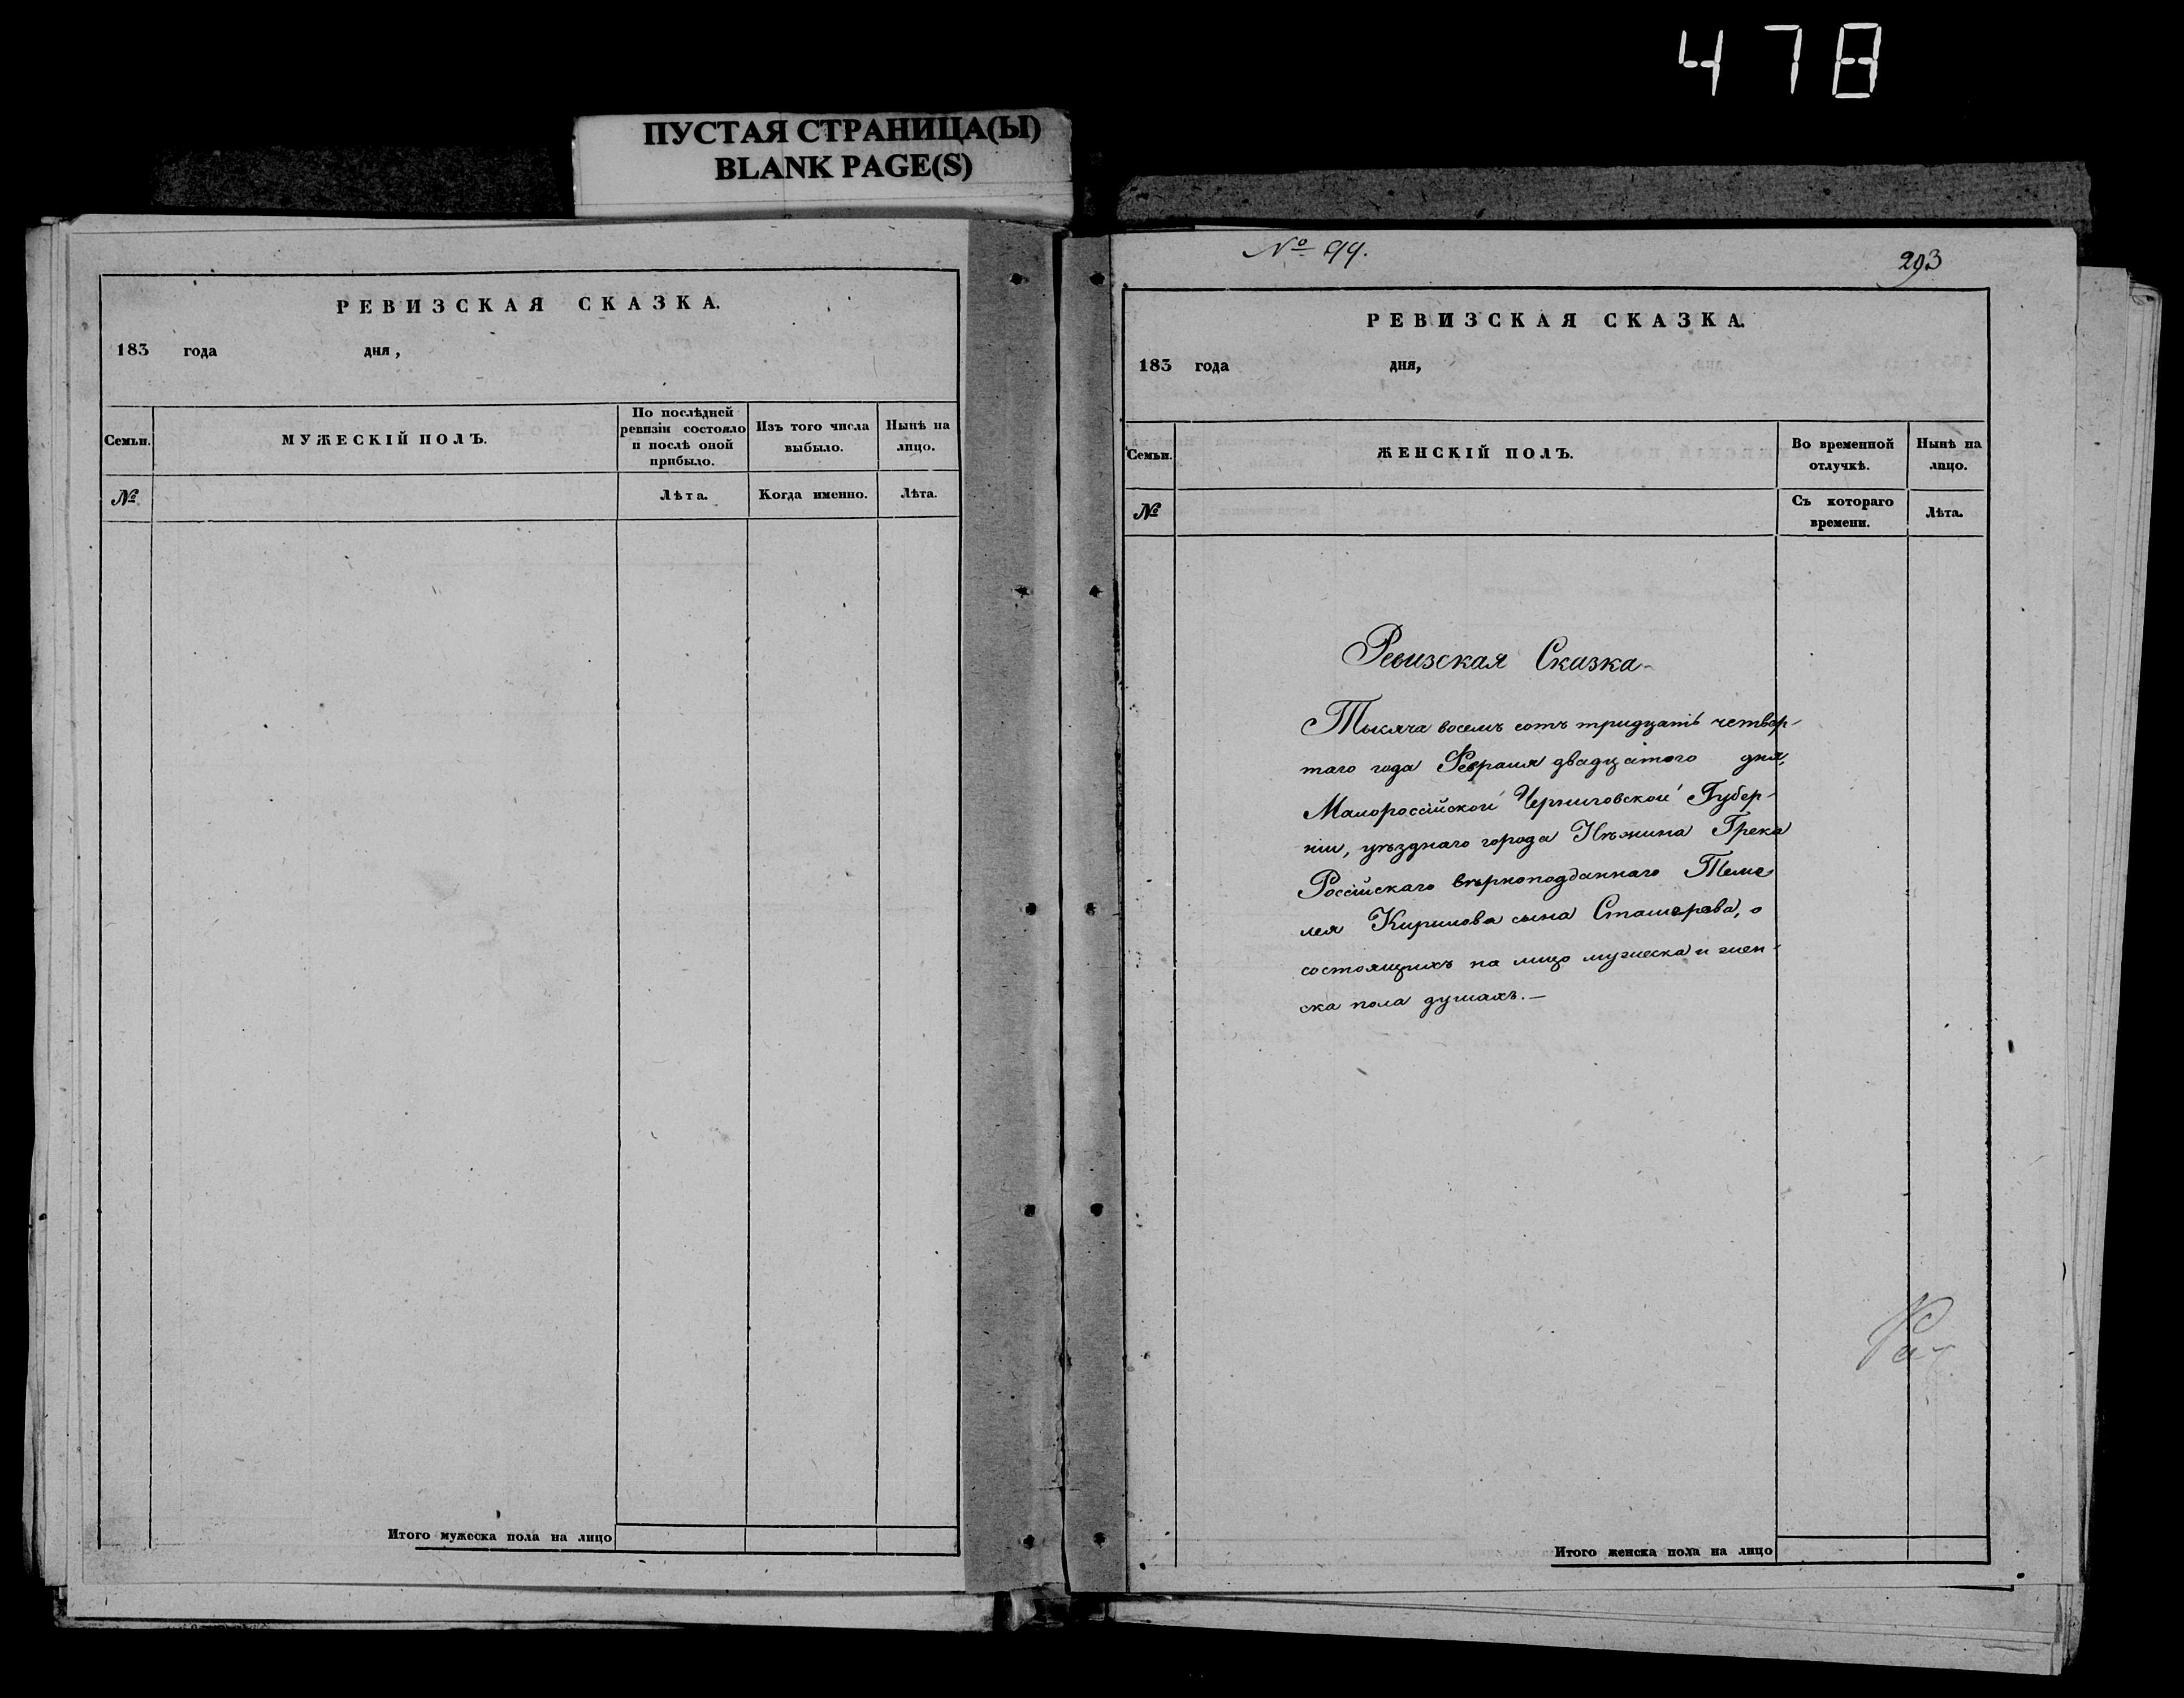 478
ПУСТАЯ СТРАНИЦА(Ы)
BLANK PAGE(S)
РЕВИЗСКАЯ СКАЗКА.
183 года дня,
Семьи.
МУЖЕСКІЙ ПОЛЪ.
По послѣдней
ревизіи состояло
и послѣ оной
прибыло.
Изъ того числа
выбыло.
Нынѣ на
лицо.
№
Лѣта.
Когда именно.
Лѣта.
Итого мужеска пола на лицо
№ 99.
293
РЕВИЗСКАЯ СКАЗКА.
183 года дня,
Семьи.
ЖЕНСКІЙ ПОЛЪ.
Во временной
отлучкѣ.
Нынѣ на
лицо.
№
Съ котораго
времени.
Лѣта.
Ревизская Сказка
Тысяча восемъ сотъ тридцать четвер-
таго года Февраля двадцатого дня,
Малоросійской Черниговской Губер-
ніи, уѣзднаго города Нѣжина Грека
Російскаго вѣрноподданнаго Теме
лея Кирилова сына Сташерева, о
состоящихъ на лицо мужеска и жен-
ска пола душахъ.—
Итого женска пола на лицо